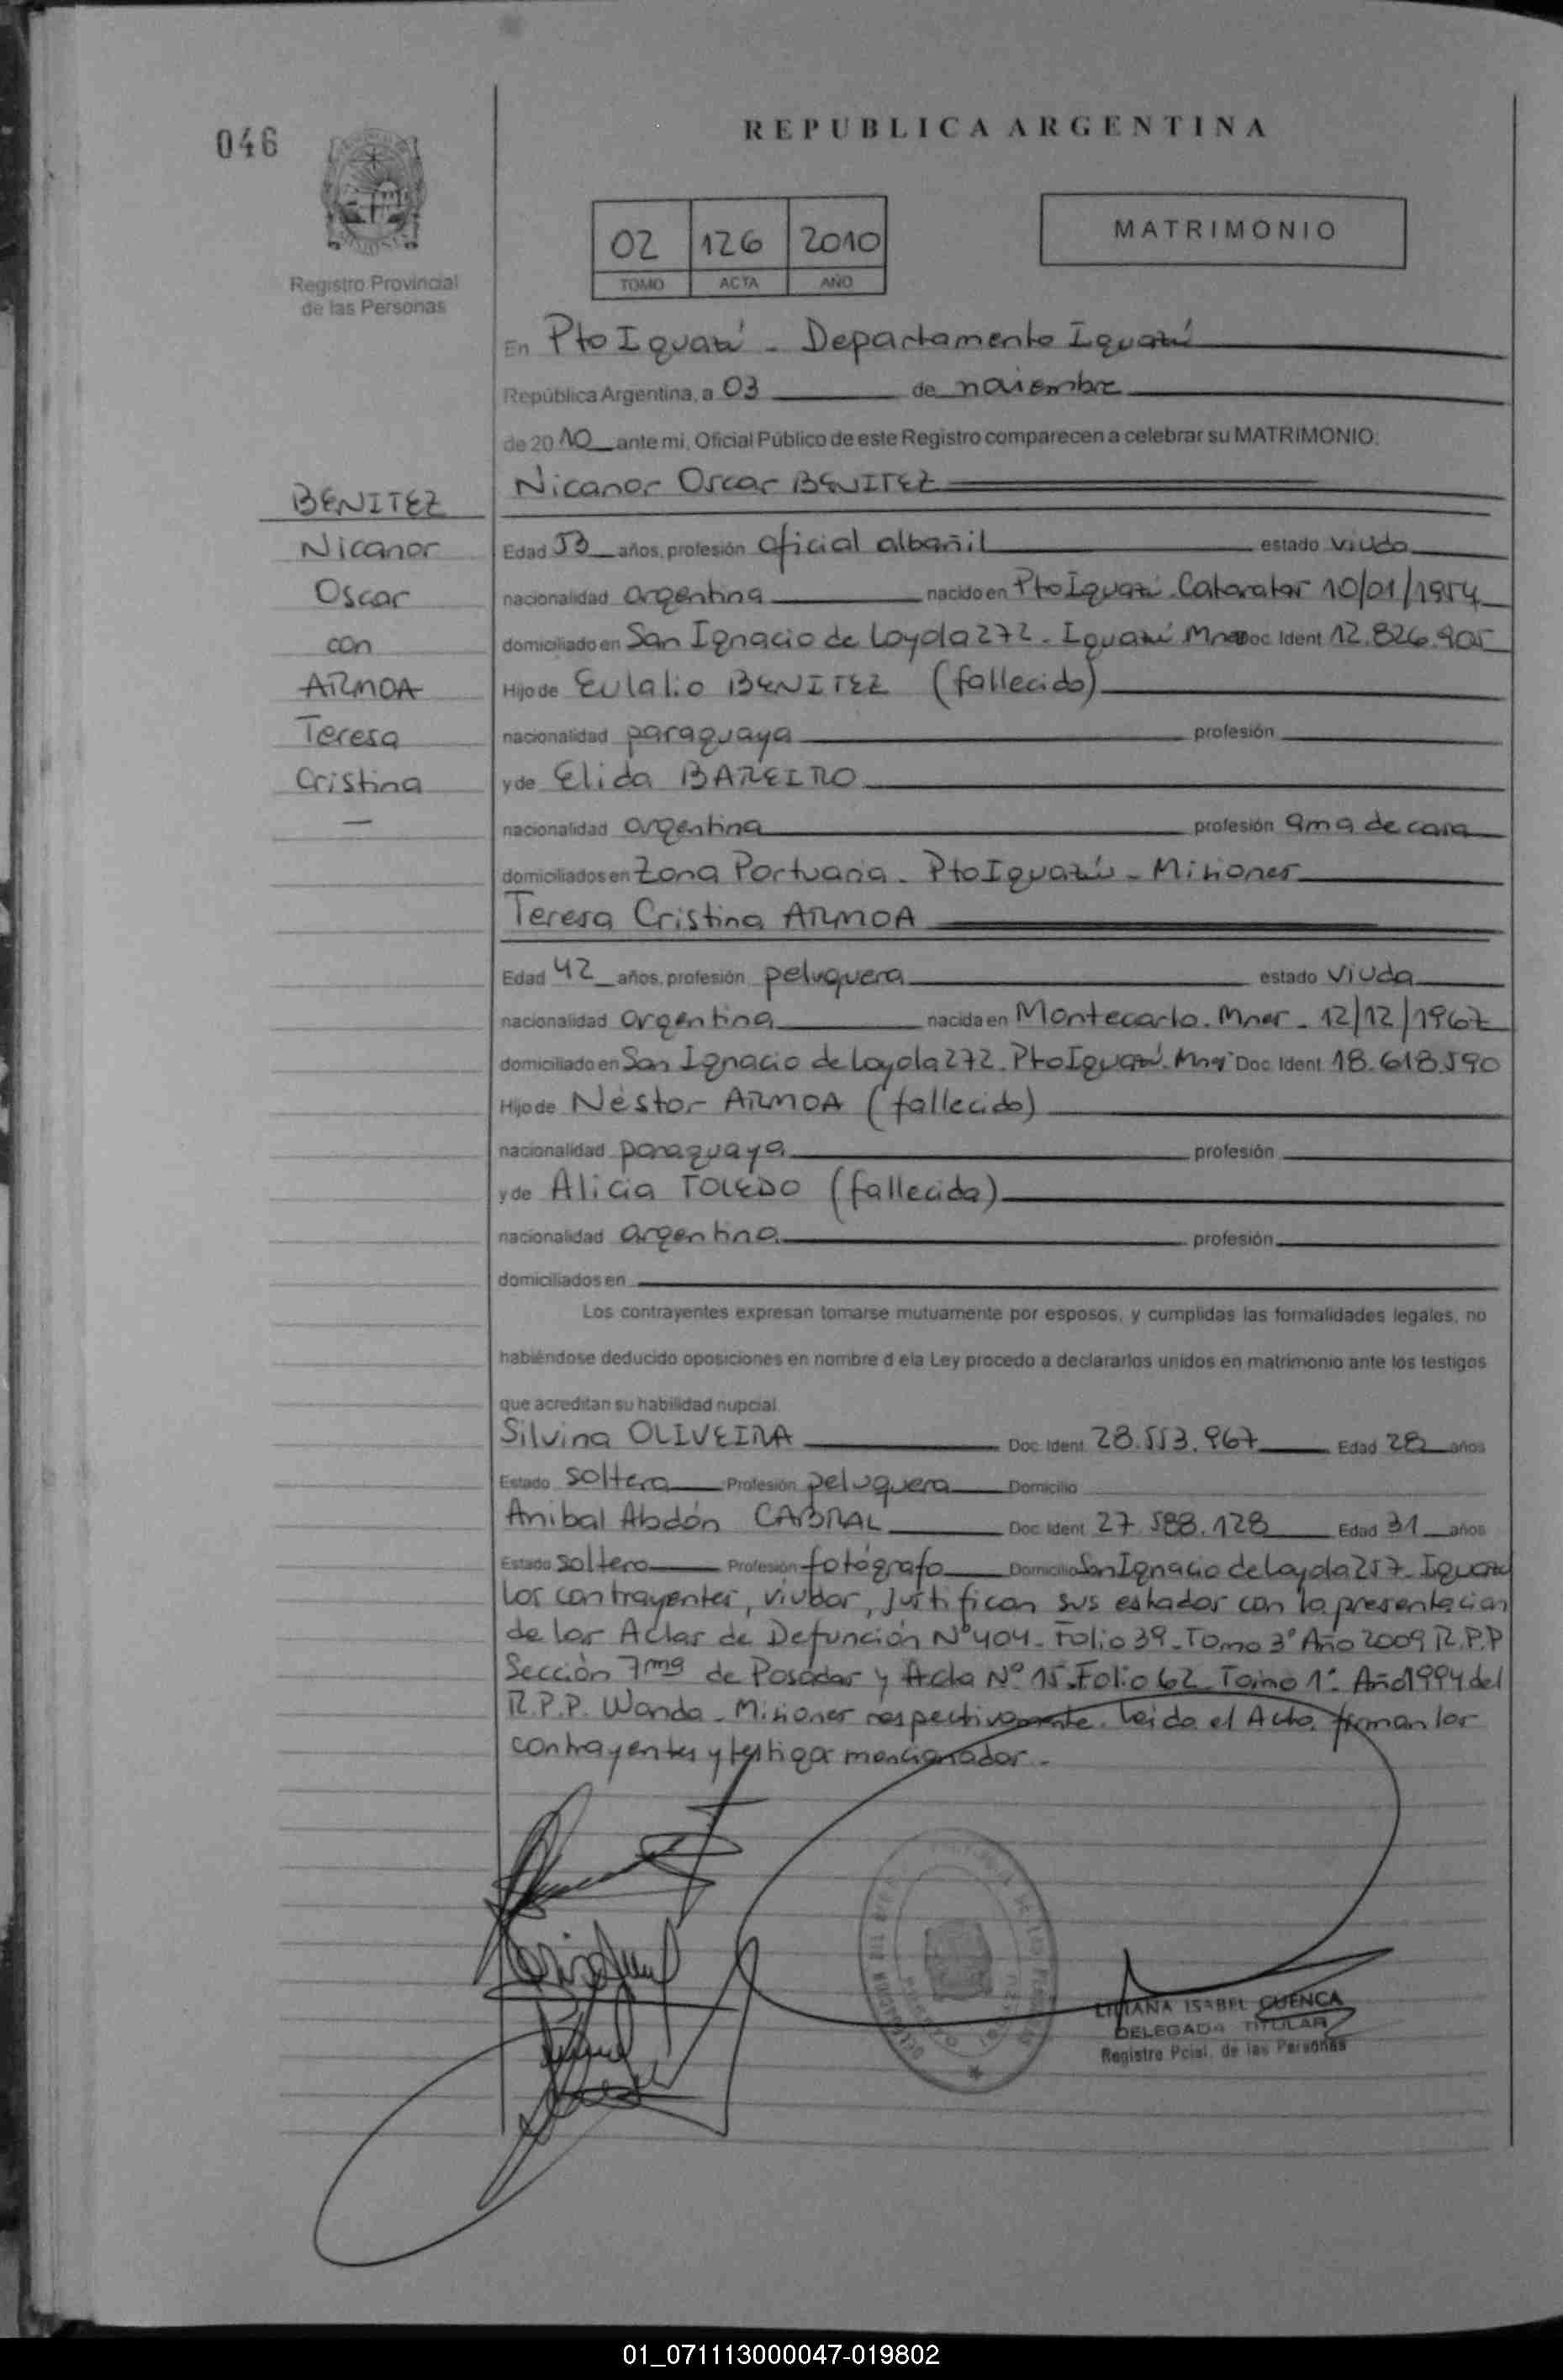 046
REPUBLICA ARGENTINA
02 126 2010
TOMO ACTA AÑO
MATRIMONIO
Registro Provincial
de las Personas
En Pto Iguazú - Departamento Iguazú
República Argentina, a 03 de noviembre
de 2010 ante mi, Oficial Público de este Registro comparecen a celebrar su MATRIMONIO:
BENITEZ
Nicanor
Oscar
con
ARMOA
Teresa
Cristina
—
Nicanor Oscar BENITEZ
Edad 53 años, profesión oficial albañil estado viudo
nacionalidad argentina nacido en Pto Iguazú. Cataratas 10/01/1954
domiciliado en San Ignacio de Loyola 272 - Iguazú Mnes Doc. Ident. 12.826.905
Hijo de Eulalio BENITEZ (fallecido)
nacionalidad paraguaya profesión
y de Elida BAREIRO
nacionalidad argentina profesión ama de casa
domiciliados en Zona Portuaria - Pto Iguazú - Misiones
Teresa Cristina ARMOA
Edad 42 años, profesión peluquera estado viuda
nacionalidad argentina nacida en Montecarlo. Mnes - 12/12/1967
domiciliado en San Ignacio de Loyola 272. Pto Iguazú. Mnes Doc. Ident. 18.618.590
Hijo de Néstor ARMOA (fallecido)
nacionalidad paraguaya profesión
y de Alicia TOLEDO (fallecida)
nacionalidad argentina profesión
domiciliados en
Los contrayentes expresan tomarse mutuamente por esposos, y cumplidas las formalidades legales, no
habiéndose deducido oposiciones en nombre d ela Ley procedo a declararlos unidos en matrimonio ante los testigos
que acreditan su habilidad nupcial.
Silvina OLIVEIRA Doc. Ident. 28.553.967 Edad 28 años
Estado soltera Profesión peluquera Domicilio
Anibal Abdón CABRAL Doc. Ident. 27.588.128 Edad 31 años
Estado soltero Profesión fotógrafo Domicilio San Ignacio de Loyola 257 - Iguazú
Los contrayentes, viudos, justifican sus estados con la presentación
de las Actas de Defunción Nº 404 - Folio 39 - Tomo 3º Año 2009 R.P.P
Sección 7ma de Posadas y Acta Nº 15 - Folio 62 - Tomo 1º Año 1994 del
R.P.P. Wanda - Misiones respectivamente. Leida el Acta, firman los
contrayentes y testigos mencionados.-
LILIANA ISABEL CUENCA
DELEGADA TITULAR
Registro Pcial. de las Personas
01_071113000047-019802